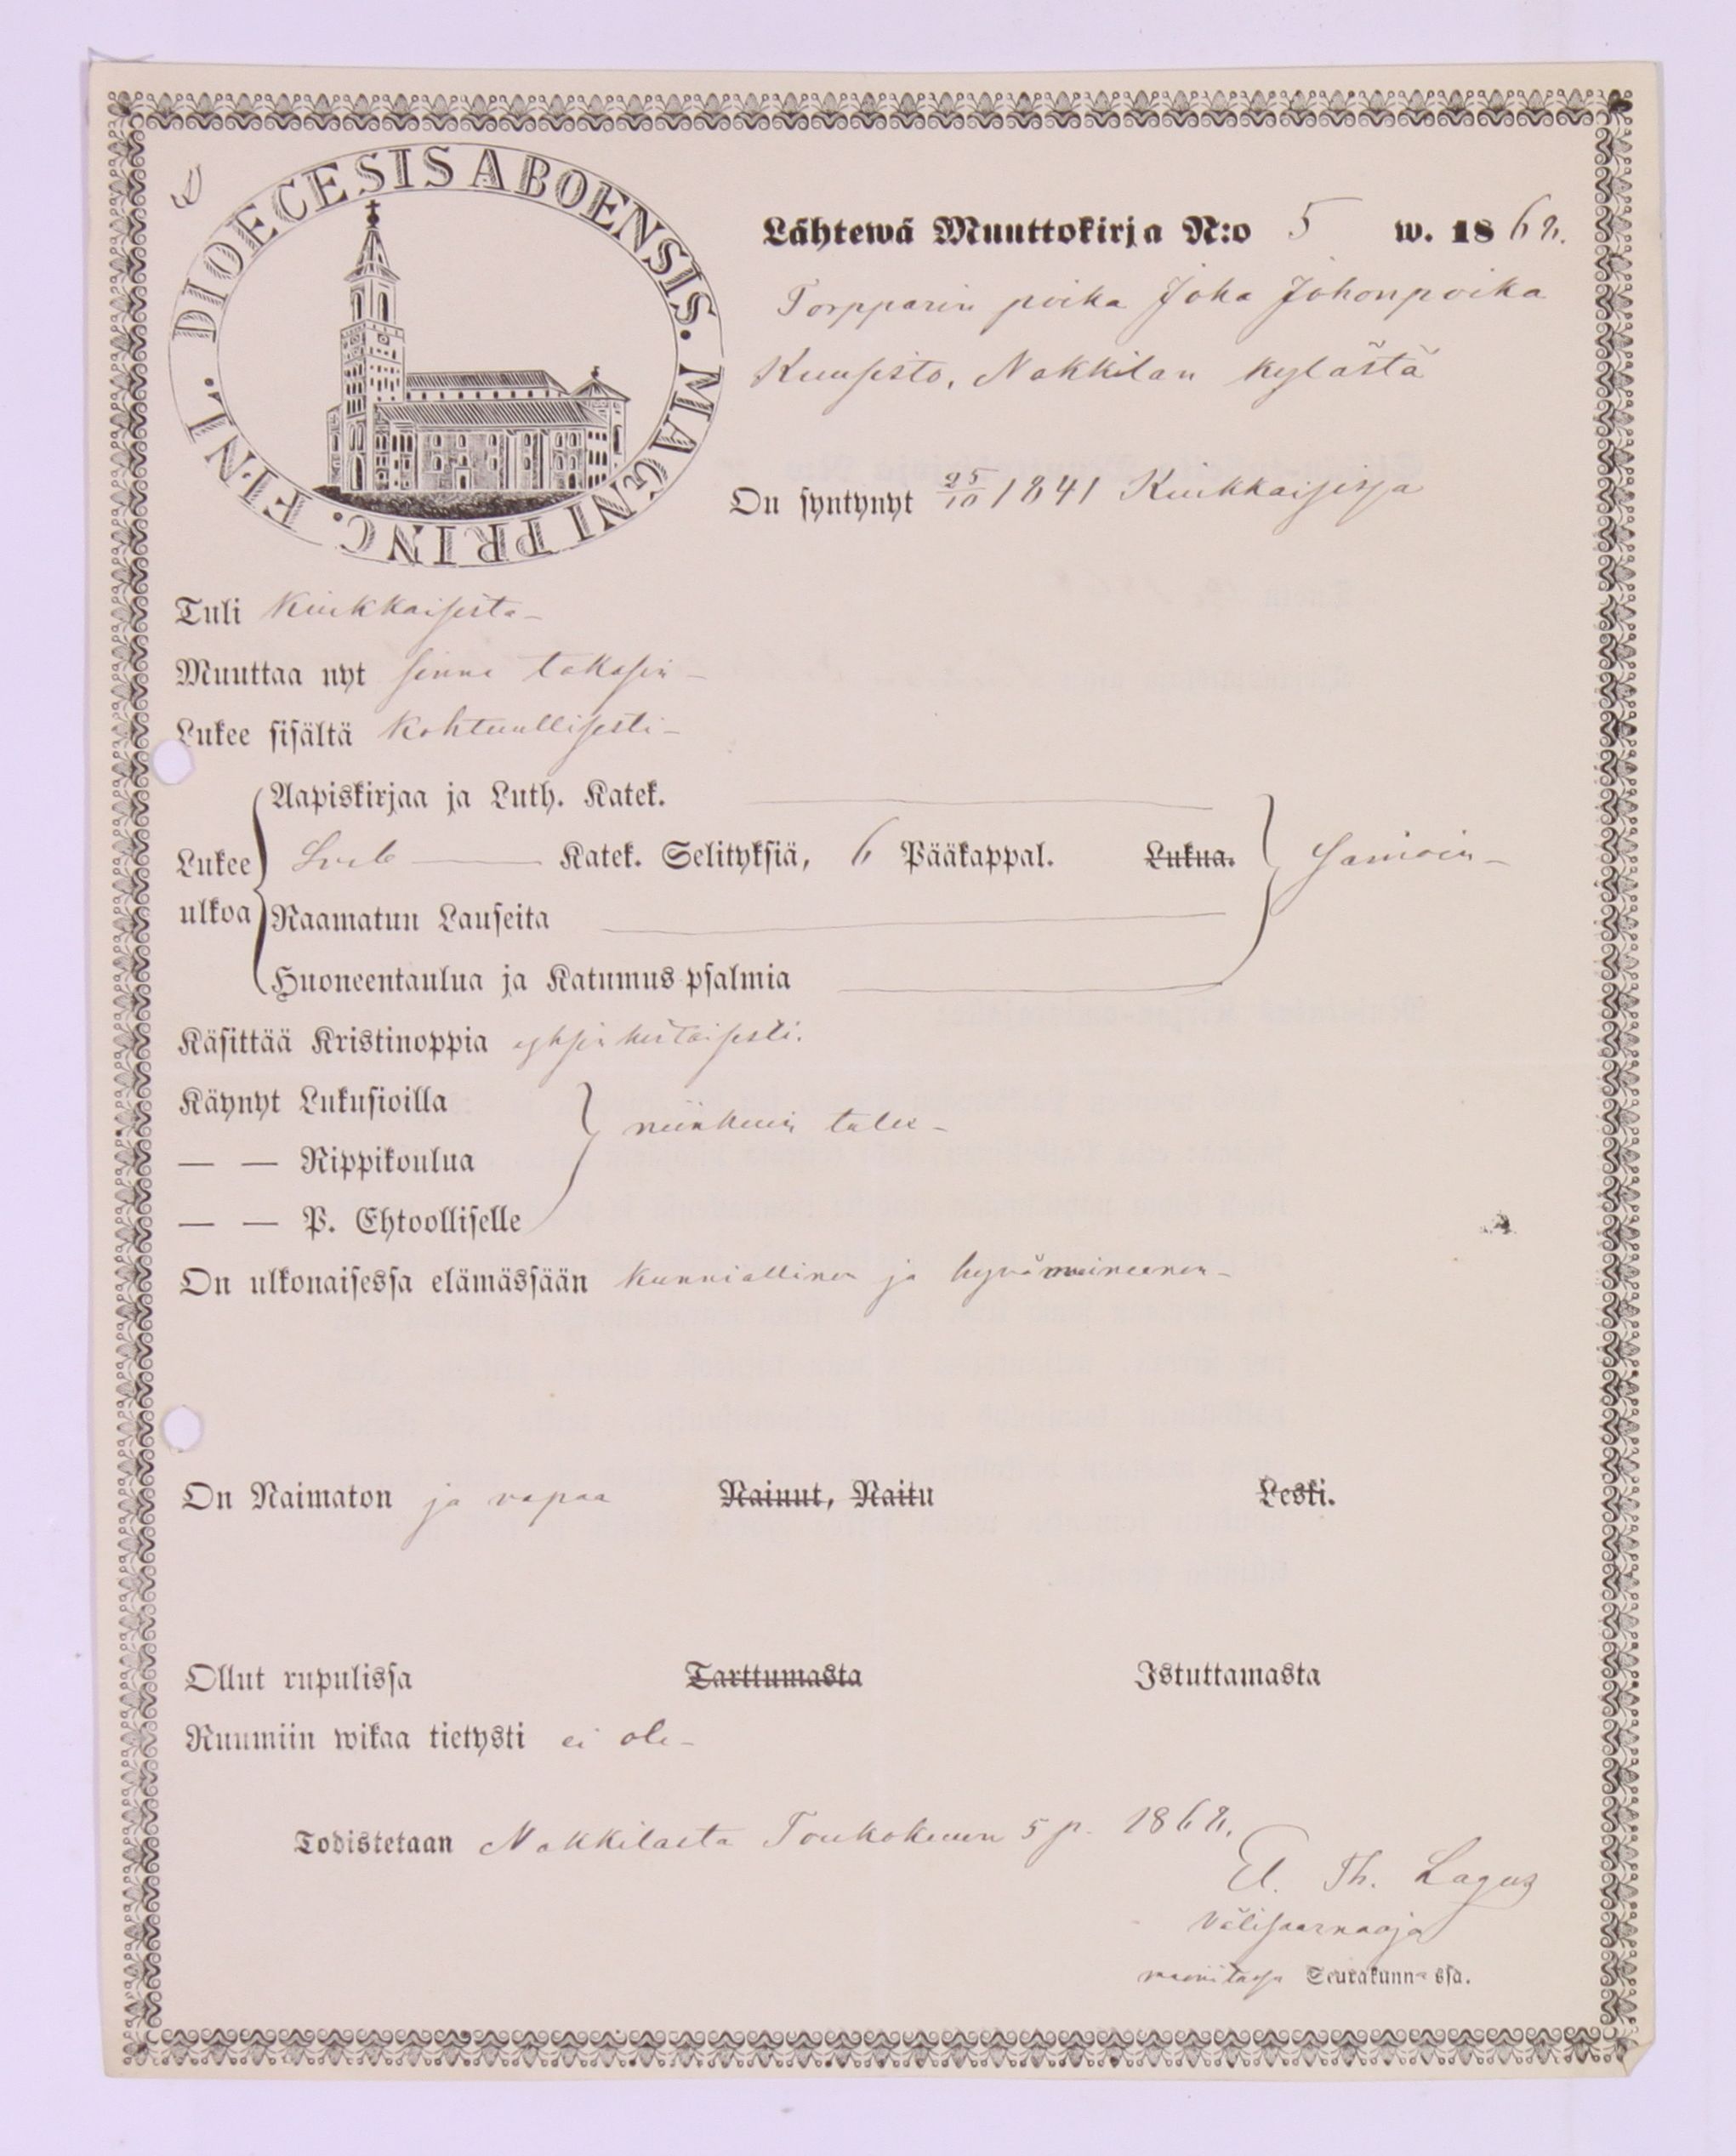 DIOECESIS ABOENSIS. MAGNI PRINC. FINL.
Lähtewä Muuttokirja N:o 5 w. 1868.
Torpparin poika Joha Johonpoika
Kuusisto, Nakkilan kylästä
On syntynyt 25/10 1841 Kiukkaisissa
Tuli Kiukkaisista –
Muuttaa nyt sinne takasin –
Lukee sisältä Kohtuullisesti –
Aapiskirjaa ja Luth. Katek.
Lukee ulkoa Sveb Katek. Selityksiä, 6 Pääkappal. Lukua. Samoin –
Raamatun Lauseita
Huoneentaulua ja Katumus psalmia
Käsittää Kristinoppia yksinkertaisesti.
Käynyt Lukusioilla
— — Rippikoulua niinkuin tulee –
— — P. Ehtoolliselle
On ulkonaisessa elämässään kunniallinen ja hyvämaineinen –
On Naimaton ja vapaa Nainut, Naitu Leski.
Ollut rupulissa Tarttumasta Istuttamasta
Ruumiin wikaa tietysti ei ole –
Todistetaan Nakkilasta Toukokuun 5 p. 1868.
Th. Lagus
Välisaarnaaja
mainitussa Seurakunnassa.